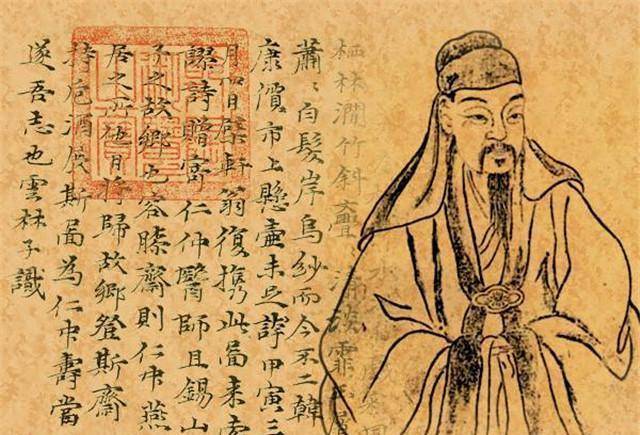 栖林澗竹斜亹〻清談霏玉屑
蕭〻白髮岸烏紗而今不二韓
康價市上懸壺未足誇甲寅三
月四日檗軒翁復携此圖来索
謬詩贈寄仁仲醫師且錫山
予之故鄉也容膝齋則仁仲燕
居之所他日將歸故鄉登斯齋
持卮酒展斯圖為仁仲壽當
遂吾志也雲林子識